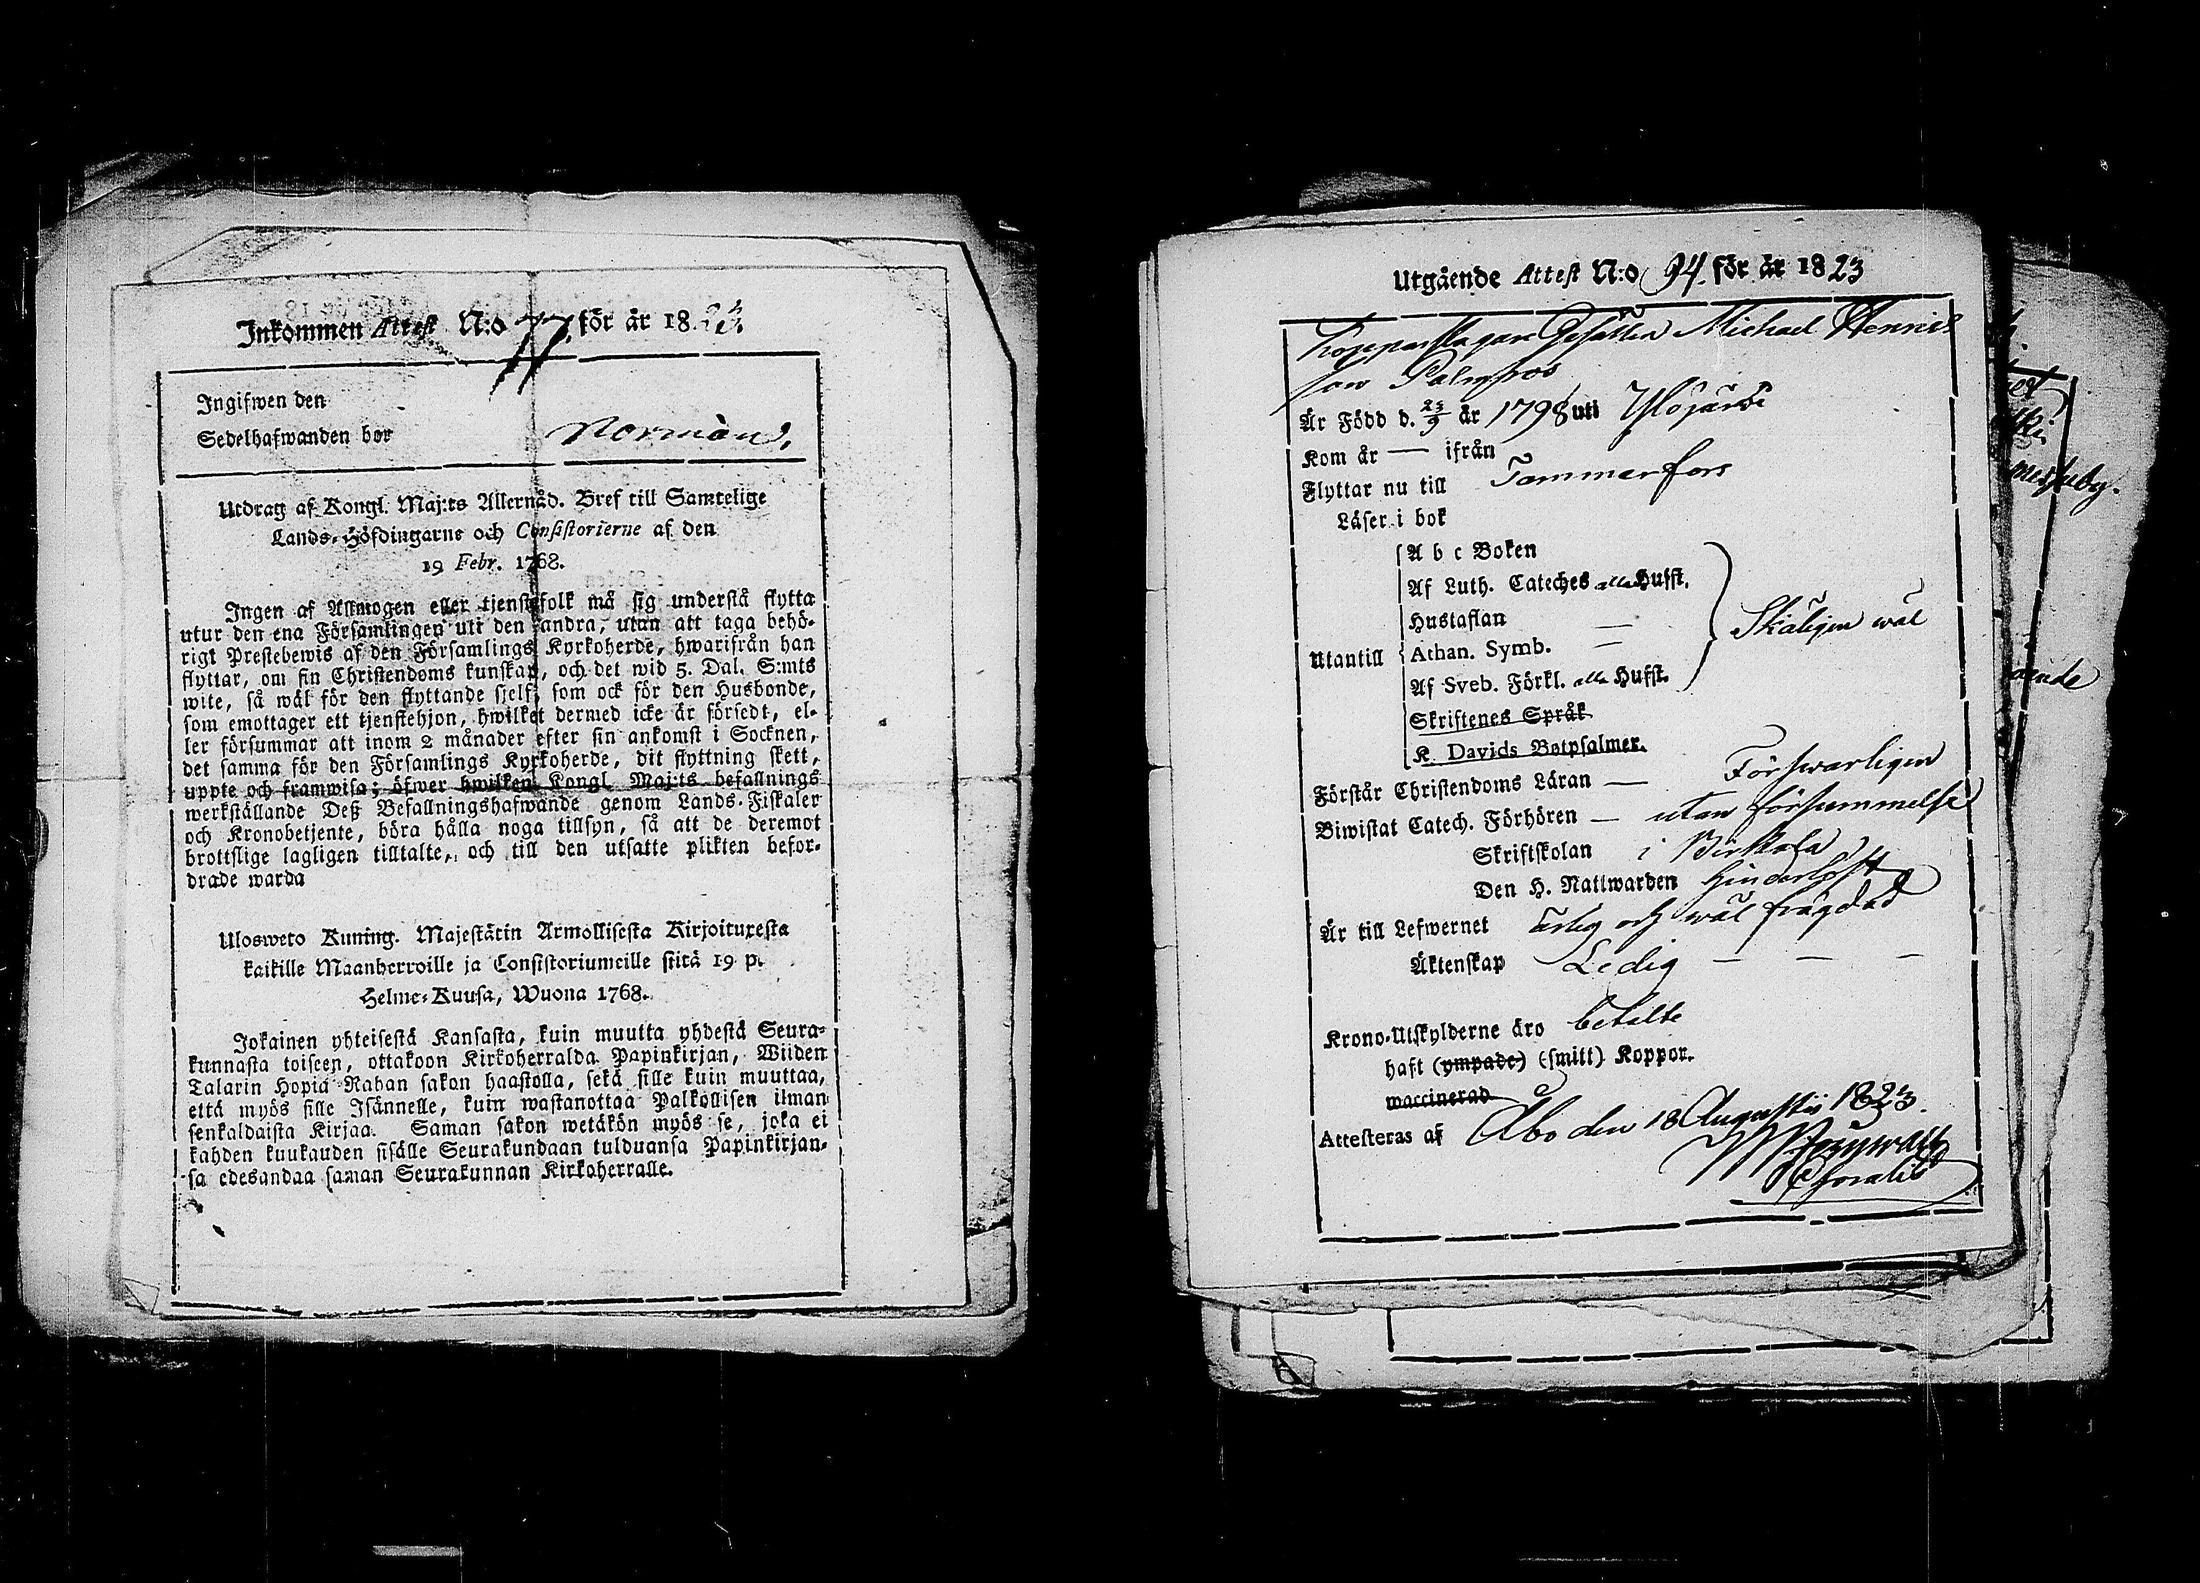 Inkommen Attest N:o 77. för år 1823.
Ingifwen den
Sedelhafwanden bor Normán,
Utdrag af Kongl. Maj:ts Allernåd. Bref till Samtelige
Lands-Höfdingarne och Consistorierne af den
19 Febr. 1768.
Ingen af Allmogen eller tjenstefolk må sig understå flytta
utur den ena Församlingen uti den andra, utan att taga behö-
rigt Prestebewis af den Församlings Kyrkoherde, hwarifrån han
flyttar, om sin Christendoms kunskap, och det wid 5. Dal. S:mts
wite, så wäl för den flyttande sjelf, som ock för den Husbonde,
som emottager ett tjenstehjon, hwilket dermed icke är försedt, el-
ler försummar att inom 2 månader efter sin ankomst i Socknen,
det samma för den Församlings Kyrkoherde, dit flyttning skett,
uppte och framwisa; öfwer hwilken Kongl. Maj:ts befallnings
werkställande Deß Befallningshafwande genom Lands-Fiskaler
och Kronobetjente, böra hålla noga tillsyn, så att de deremot
brottslige lagligen tilltalte, och till den utsatte plikten befor-
drade warda
Ulosweto Kuning. Majestätin Armollisesta Kirjoituxesta
kaikille Maanherroille ja Consistoriumeille siitä 19 p.
Helme-Kuusa, Wuona 1768.
Jokainen yhteisestä Kansasta, kuin muutta yhdestä Seura-
kunnasta toiseen, ottakoon Kirkoherralda Papinkirjan, Wiiden
Talarin Hopia-Rahan sakon haastolla, sekä sille kuin muuttaa,
että myös sille Isännelle, kuin wastanottaa Palkollisen ilman
senkaldaista Kirjaa. Saman sakon wetäkön myös se, joka ei
kahden kuukauden sisälle Seurakundaan tulduansa Papinkirjan-
sa edesandaa saman Seurakunnan Kirkoherralle.
Utgående Attest N:o 94. för år 1823
Kopparslagare Gesällen Michael Henrics
son Palmroos
Är Född d. 25/9 år 1798 uti Ylöjärvi
Kom år — ifrån
Flyttar nu till Tammerfors
Läser i bok
Utantill
A b c Boken
Af Luth. Cateches alla Hufst.
Hustaflan —
Athan. Symb. —
Af Sveb. Förkl. alla Hufst.
Skriftenes Språk
K. Davids Botpsalmer.
Skäligen wäl
Förstår Christendoms Läran — Förswarligen
Biwistat Catech. Förhören — utan försummelse
Skriftskolan i Birkala
Den H. Nattwarden
Är till Lefwernet ärlig och wäl frägdad
Äktenskap Ledig — — —
Krono-Utskylderne äro betalte
haft (ympade) (smitt) Koppor.
waccinerad
Attesteras af Åbo den 18 Augusti 1823.